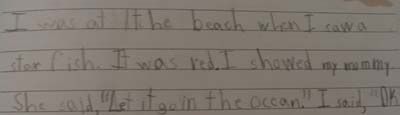 I was at the beach when I saw a
star fish. It was red. I showed my mommy.
She said, "Let it go in the ocean." I said, "OK